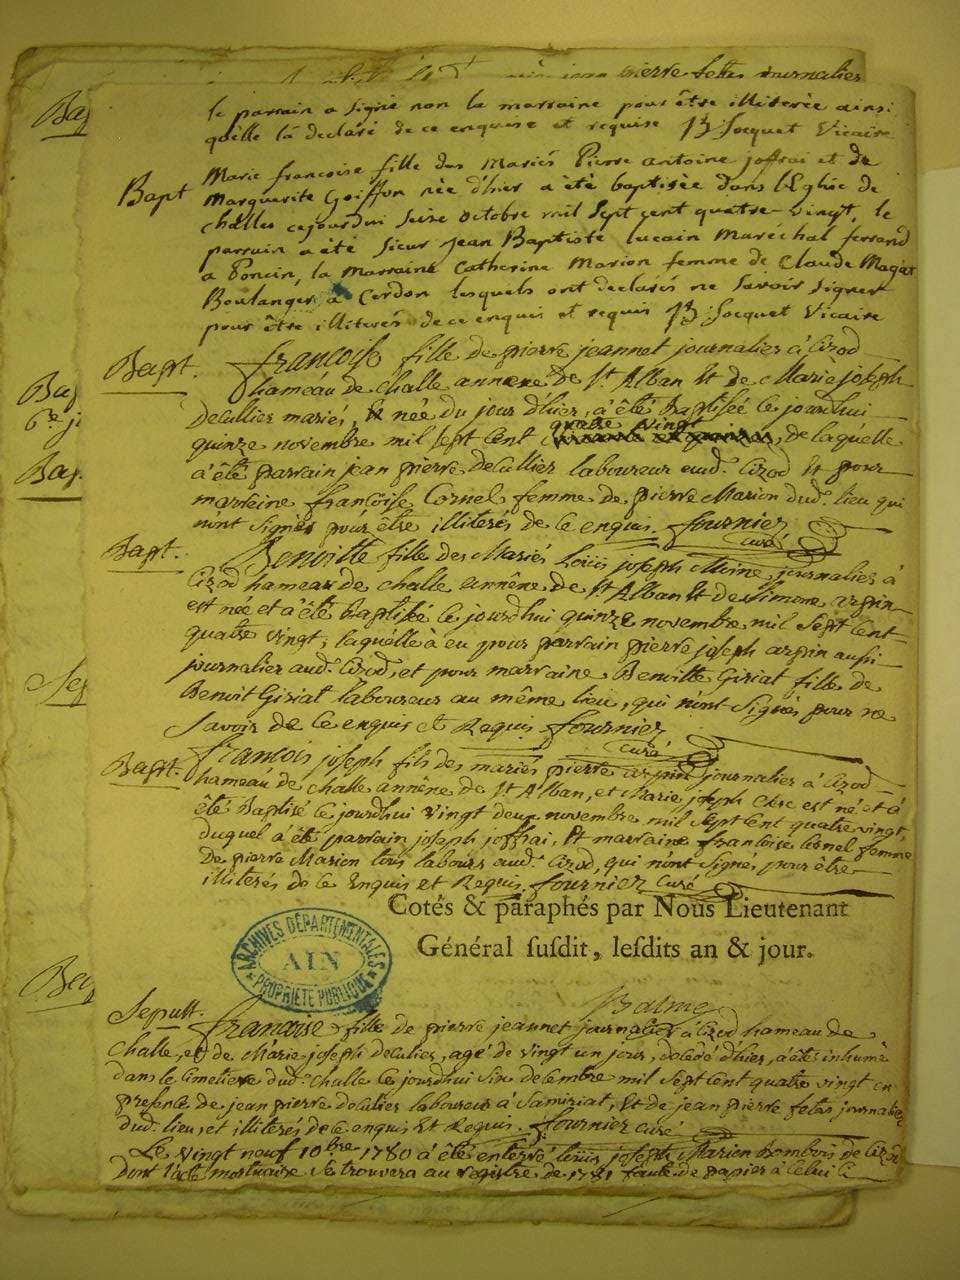 pierre fetas journalier
le parrain a signé non la marraine pour être illiterée ainsi
quelle la declaré de ce enquise et requise JB: Jocquet Vicaire
Bapt
Marie francoise fille des Mariés Pierre antoine joffrai et de
Marguerite Goiffon née d'hier a été baptisée dans l'Eglise de
challes cejourdui seize octobre mil sept cent quatre-vingt, le
parrain a été Sieur Jean Baptiste lucain Maréchal ferrand
a Poncin, la Marraine Catherine Marion femme de Claude Magat
Boulanger a Cerdon lesquels ont declarés ne savoir signer
pour être illiterés de ce enquis et requis JB: Jocquet Vicaire
Bapt.
francoise fille de pierre jeannet journalier à Cizod
hameau de challe annexe de St Alban Et de Marie joseph
decullier mariés, Et née du jour d'hier, à êté Baptisée ce jourdhui
quinze novembre mil sept cent quatre vingt, de laquélle
à êté parrain jean pierre decullier laboureur aud. Cizod Et pour
marreine françoise Cornel femme de pierre Marion dud. lieu qui
n'ont signés pour être illiterés de ce enquis. fournier
curé
Bapt.
Benoitte fille des Mariés Loüis joseph Moine journalier à
Cizod hameau de challe annêne de St Alban Et de Simone arpin
est née et a êté Baptisée ce jourdhui quinze novembre mil sept cent
quatre vingt, laquélle à eu pour parrain pierre joseph arpin aussi
journalier aud. Cizod, et pour marraine Benoitte Girat fille de
Benoit Girat laboureur au même lieu, qui n'ont signés pour ne
savoir de ce enquis et Requis fournier
curé
Bapt.
francois joseph fils des mariés pierre arpin journalier à Cizod
hameau de challe annêne de St Alban, et Marie joseph est né et à
êté Baptisé ce jourdhui vingt deux novembre mil sept cent quatre vingt,
duquel à êté parrain joseph joffrai, Et marraine françoise Cornel femme
de pierre Marion tous labours aud. Cizod, qui n'ont signés pour être
illiterés de ce Enquis et Requis fournier curé
Cotés & paraphés par Nous Lieutenant
Général suſdit, leſdits an & jour.
ARCHIVES DÉPARTEMENTALES
AIN
PROPRIÉTÉ PUBLIQUE
Balme
Sepult.
francoise fille de pierre jeannet journalier à Cizod hameau de
Challe, et de Marie joseph deculier, agé de vingt un jours, décéré d'hier, à êtés inhumé
dans le Cimetiere dud. challe ce jourdhui six decembre mil sept cent quatre vingt en
presence de jean pierre deculier laboureur à Samiriat, Et de jean pierre fetas journalier
dud. lieu, et illiterés de ce enquis Et Requis. fournier curé
Le vingt neuf 10bre 1780 à êté enterré loüis joseph Marion Bombois de Cizod
dont l'acte mortuaire se trouvera au registre de 1781 faute de papier à Celui ci